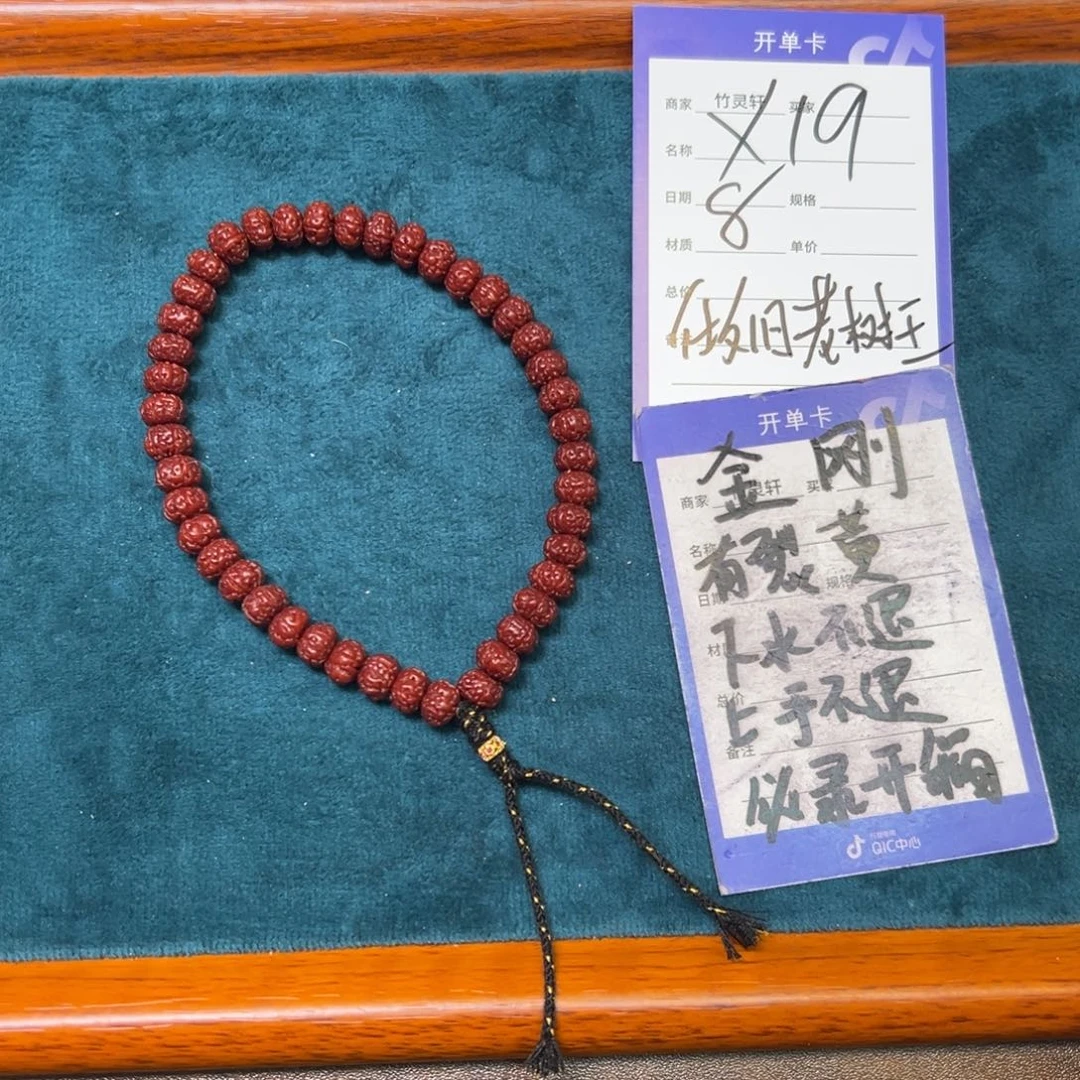 开单卡
商家 竹灵轩 买家
X19
名称
日期 规格
8
材质 单价
总价
做旧老树王
开单卡
金刚
商家 灵轩 买
名称
有裂黄
日期 规格
下水不退
总价
上手不退
备注
必录开箱
抖音电商
QIC中心